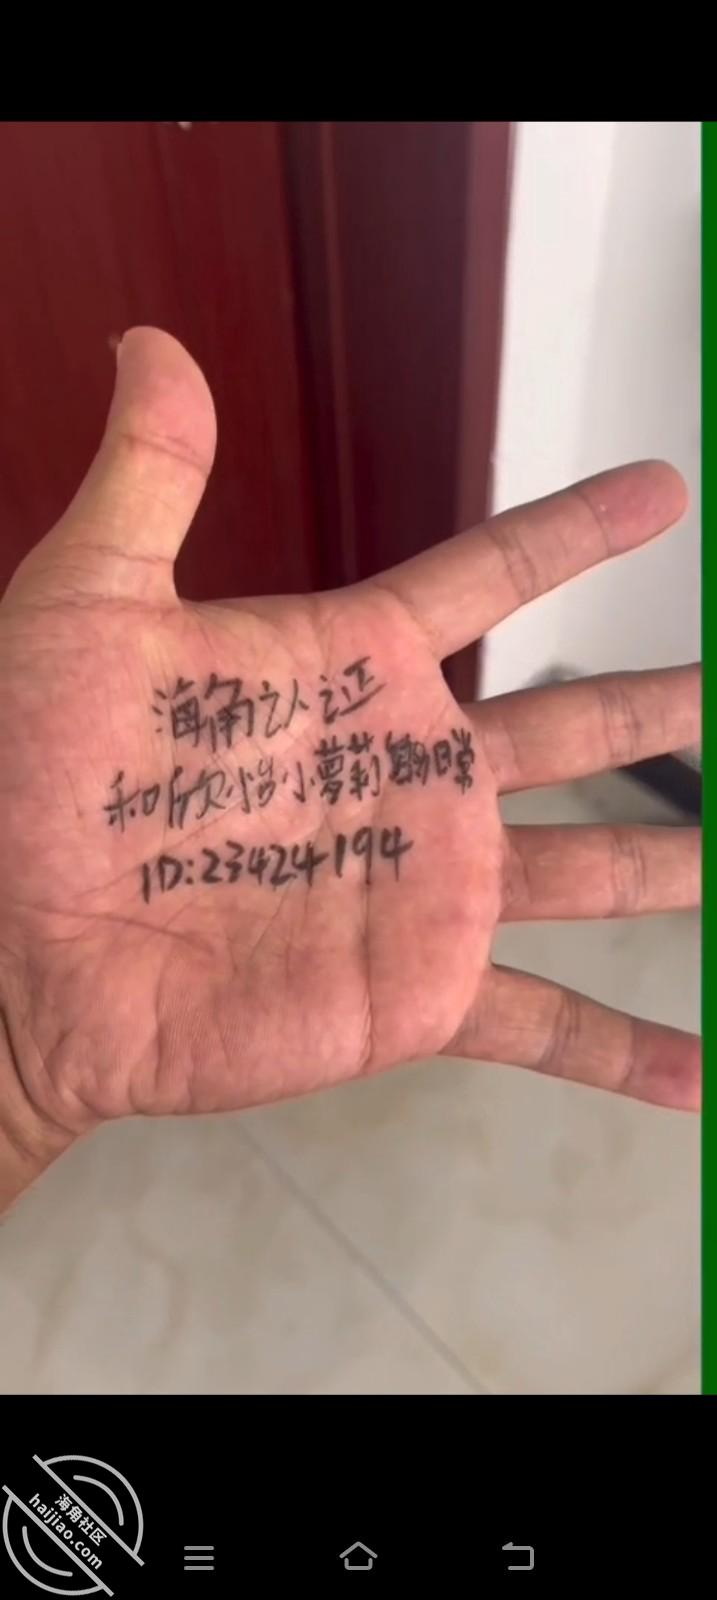 海角认证
和欣怡小萝莉日常
ID:23424194
海角社区
haijiao.com